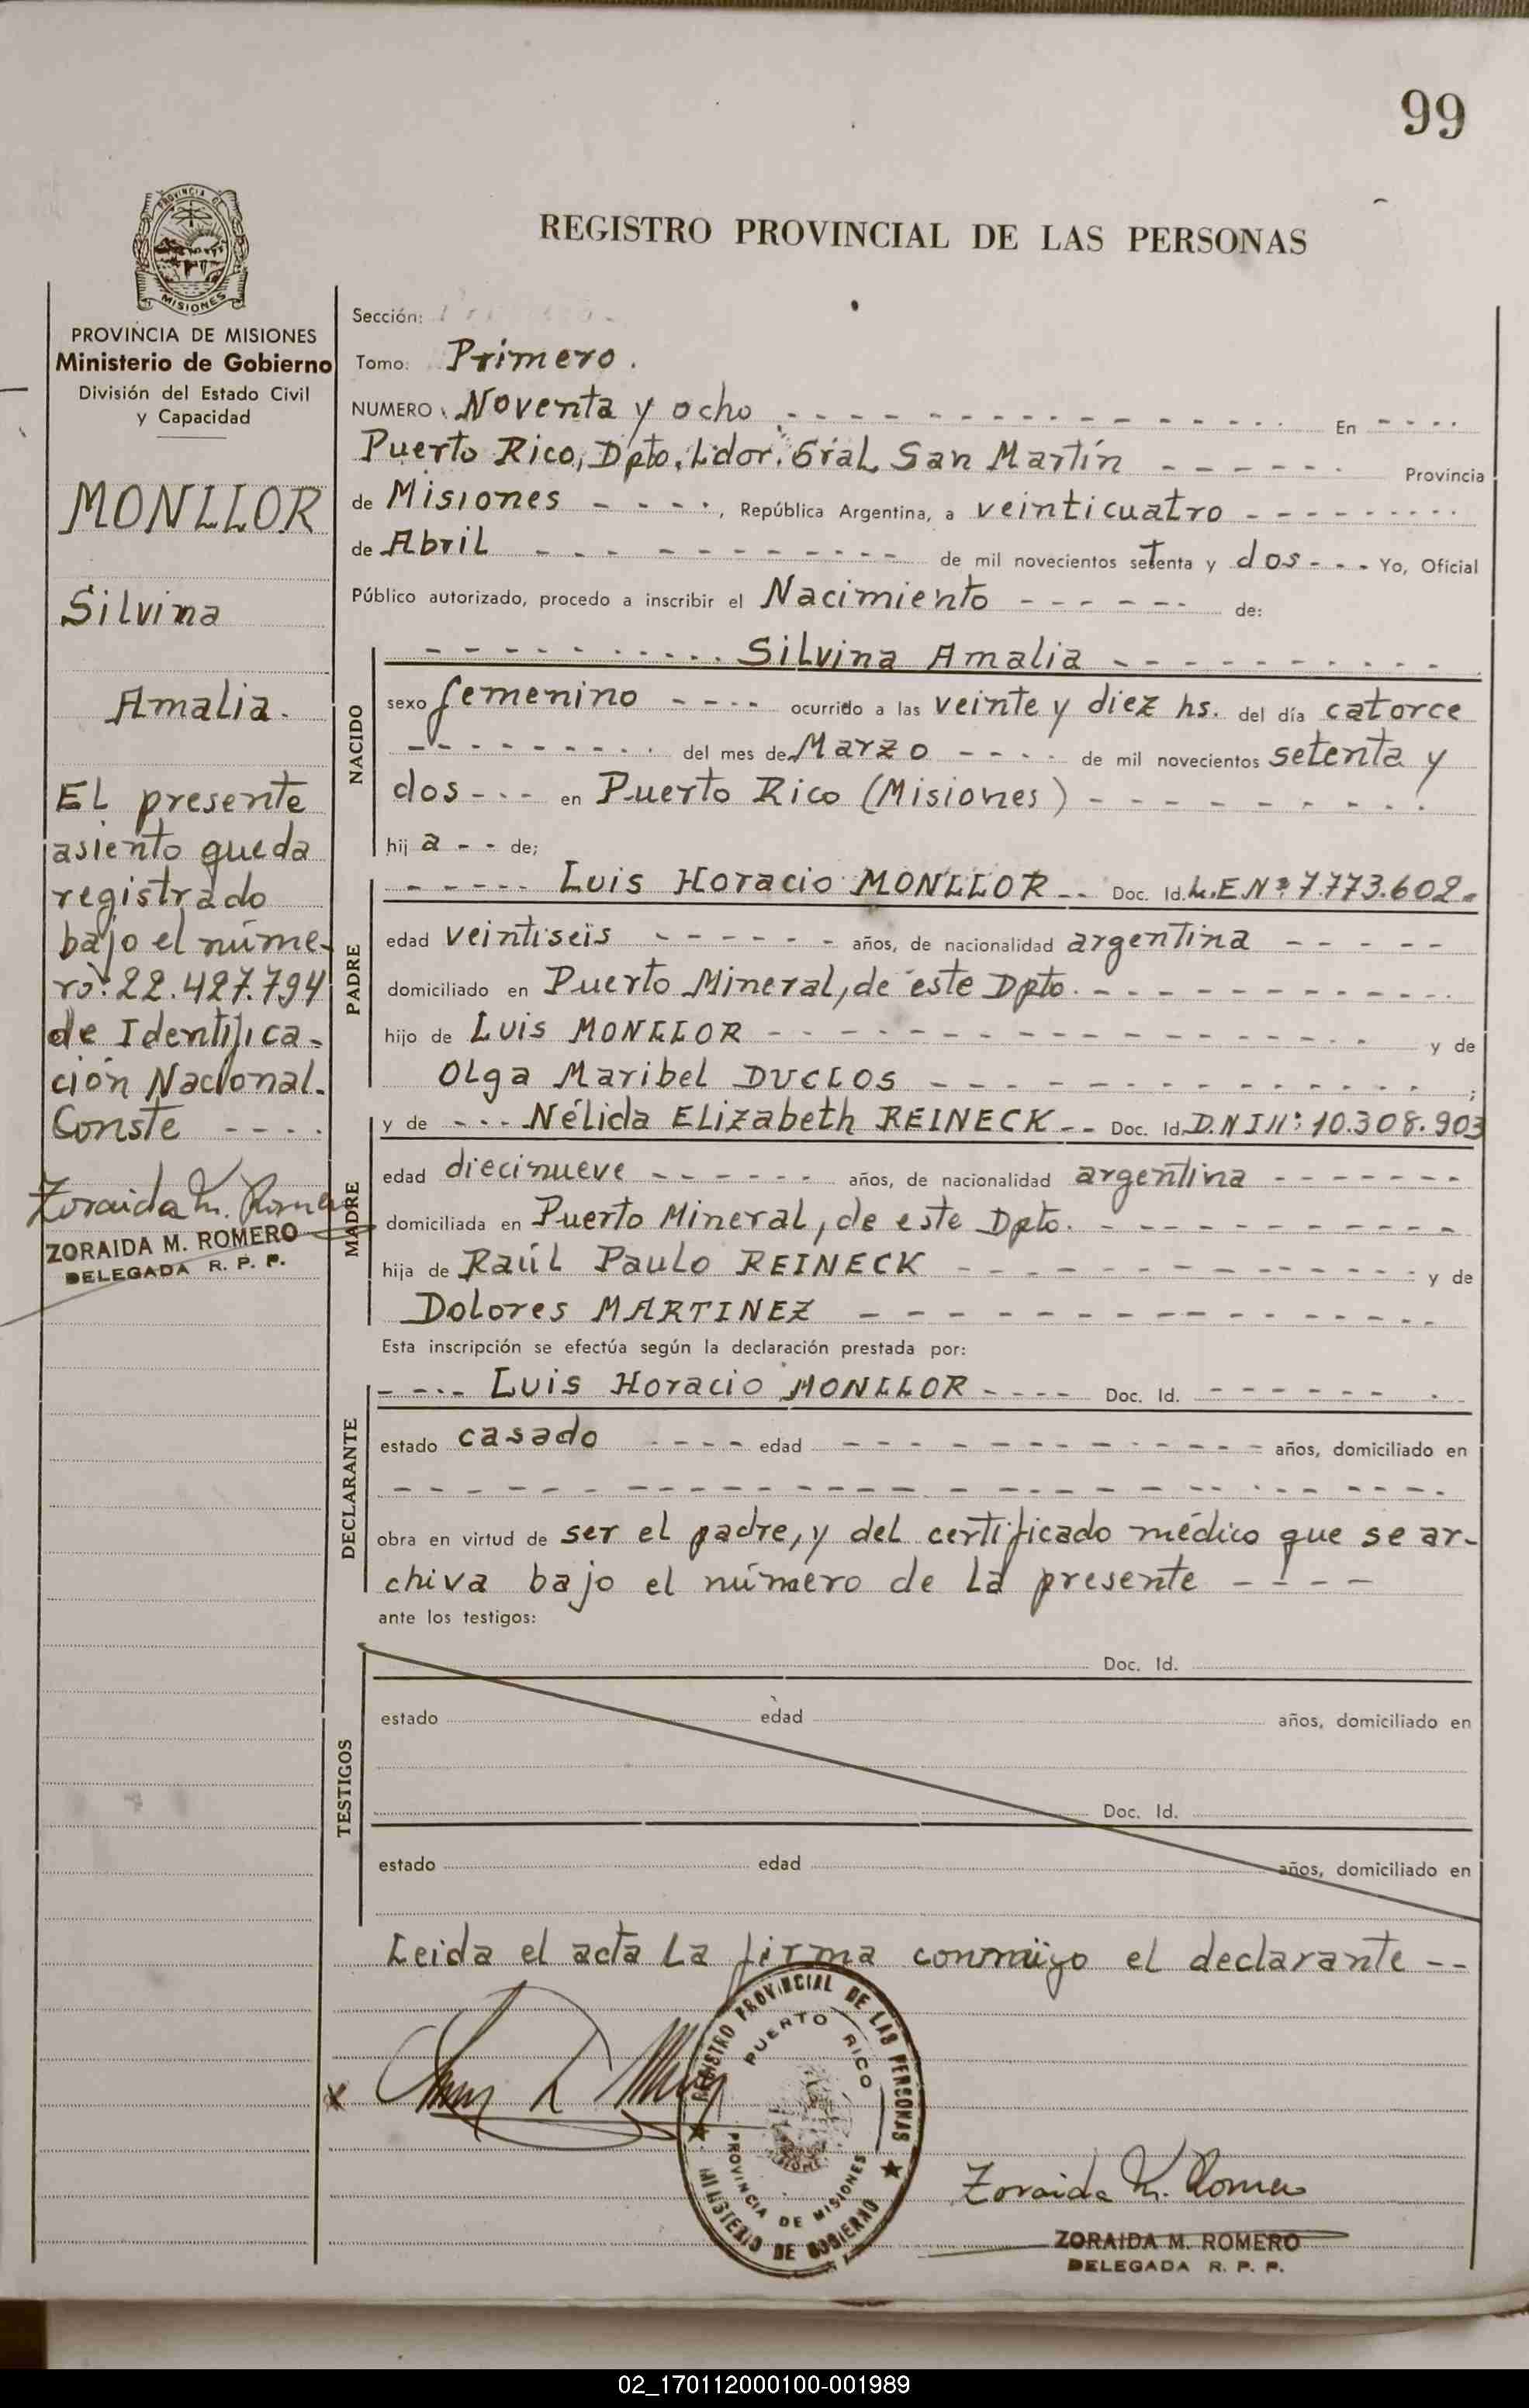 99
PROVINCIA DE
MISIONES
REGISTRO PROVINCIAL DE LAS PERSONAS
PROVINCIA DE MISIONES
Ministerio de Gobierno
División del Estado Civil
y Capacidad
MONLLOR
Silvina
Amalia.
El presente
asiento queda
registrado
bajo el núme-
ro: 22.427.794
de Identifica-
ción Nacional.
Conste - - - -
Zoraida M. Romero
ZORAIDA M. ROMERO
DELEGADA R. P. P.
Sección:
Tomo: Primero.
NUMERO: Noventa y ocho - - - - En - - - -
Puerto Rico, Dpto. Ldor. Gral San Martín - - - - Provincia
de Misiones - - - -, República Argentina, a veinticuatro - - - -
de Abril - - - - de mil novecientos setenta y dos - - - Yo, Oficial
Público autorizado, procedo a inscribir el Nacimiento - - - - de:
NACIDO
- - - - Silvina Amalia - - - -
sexo femenino - - - - ocurrido a las veinte y diez hs. del día catorce
- - - - del mes de Marzo - - - - de mil novecientos setenta y
dos - - - en Puerto Rico (Misiones) - - - -
hij a - - de;
PADRE
- - - - Luis Horacio MONLLOR - - Doc. Id. L.E Nº 7.773.602-
edad veintiseis - - - - años, de nacionalidad argentina - - - -
domiciliado en Puerto Mineral, de éste Dpto. - - - -
hijo de Luis MONLLOR - - - - y de
Olga Maribel DUCLOS - - - - ;
MADRE
y de - - - Nélida Elizabeth REINECK - - Doc. Id. D.N I Nº: 10.308.903
edad diecinueve - - - - años, de nacionalidad argentina - - - -
domiciliada en Puerto Mineral, de este Dpto. - - - -
hija de Raúl Paulo REINECK - - - - y de
Dolores MARTINEZ - - - -
Esta inscripción se efectúa según la declaración prestada por:
DECLARANTE
- - - - Luis Horacio MONLLOR - - - - Doc. Id. - - - -
estado casado - - - - edad - - - - años, domiciliado en
- - - -
obra en virtud de ser el padre, y del certificado médico que se ar-
chiva bajo el número de la presente - - - -
ante los testigos:
TESTIGOS
Doc. Id.
estado edad años, domiciliado en
Doc. Id.
estado edad años, domiciliado en
Leida el acta la firma conmigo el declarante - -
x
REGISTRO PROVINCIAL DE LAS PERSONAS
PUERTO RICO
PROVINCIA DE MISIONES
MINISTERIO DE GOBIERNO
Zoraida M. Romero
ZORAIDA M. ROMERO
DELEGADA R. P. P.
02_170112000100-001989